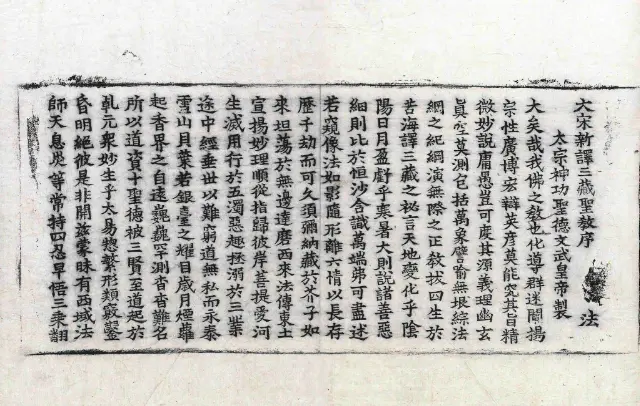 大宋新譯三藏聖教序 法
太宗神功聖德文武皇帝製
大矣哉我佛之教也化導群迷闡揚
宗性廣博宏辯英彥莫能究其旨精
微妙說庸愚豈可度其源義理幽玄
眞空莫測包括萬象譬喻無垠綜法
網之紀綱演無際之正教拔四生於
苦海譯三藏之祕言天地變化乎陰
陽日月盈虧乎寒暑大則說諸善惡
細則比於恒沙含識萬端弗可盡述
若窺像法如影隨形離六情以長存
歷千劫而可久須彌納藏於芥子如
來坦蕩於無邊達磨西來法傳東土
宣揚妙理順從指歸彼岸菩提愛河
生滅用行於五濁惡趣拯溺於三業
途中經垂世以難窮道無私而永泰
雪山貝葉若銀臺之耀目歲月煙蘿
起香界之自遠巍巍罕測杳杳難名
所以道資十聖德被三賢至道起於
乹元衆妙生乎太易惣繁形類竅鑿
昏明絕彼是非開茲蒙昧有西域法
師天息灾等常持四忍早悟三乘翻